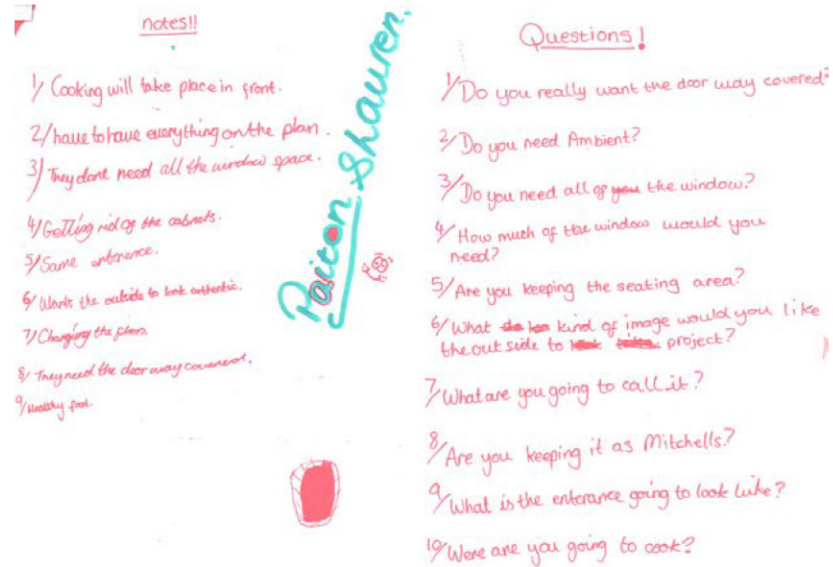 notes!!
1/ Cooking will take place in front.
2/ have to have everything on the plan.
3/ They dont need all the window space.
4/ Getting rid of the cabnets.
5/ Same enterence.
6/ Wants the outside to look authentic.
7/ Changing the floors.
8/ They need the door way covered.
9/ Healthy food.
Shauren.
Questions!
1/ Do you really want the door way covered?
2/ Do you need Ambient?
3/ Do you need all of you the window?
4/ How much of the window would you
need?
5/ Are you keeping the seating area?
6/ What kind of image would you like
the out side to project?
7/ What are you going to call it?
8/ Are you keeping it as Mitchells?
9/ What is the enterance going to look like?
10/ Were are you going to cook?